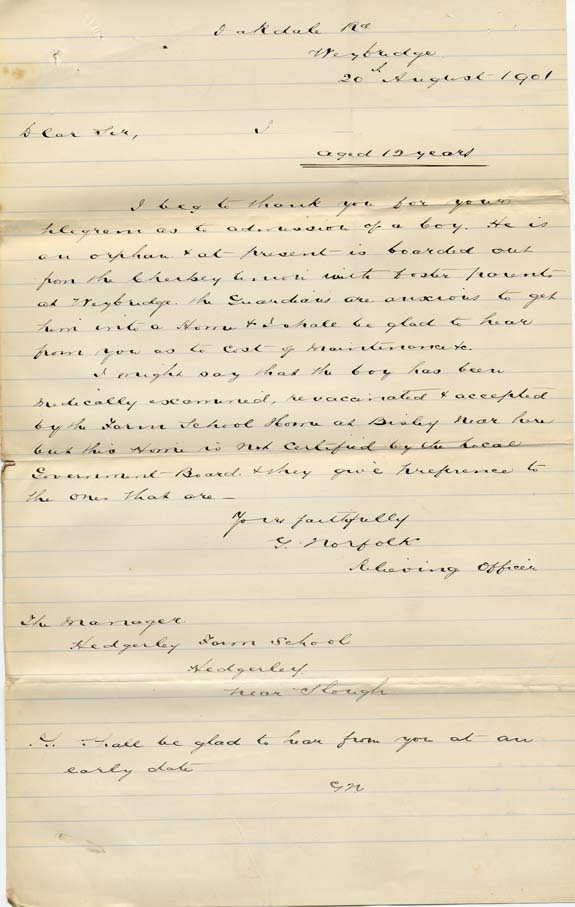 Oakdale Rd
Weybridge
20th August 1901
Dear Sir,
aged 12 years
I beg to thank you for your
telegram as to admission of a boy. He is
an orphan & at present is boarded out
from the Chertsey Union with foster parents
at Weybridge. The Guardians are anxious to get
him into a Home & I shall be glad to hear
from you as to cost of maintenance &c.
I might say that the boy has been
medically examined, revaccinated & accepted
by the Farm School Home at Bisley near here
but this Home is not certified by the Local
Government Board & they give preference to
the ones that are —
Yours faithfully
G. Norfolk
Relieving Officer
The Manager
Hedgerley Farm School
Hedgerley
near Slough
Shall be glad to hear from you at an
early date
GN